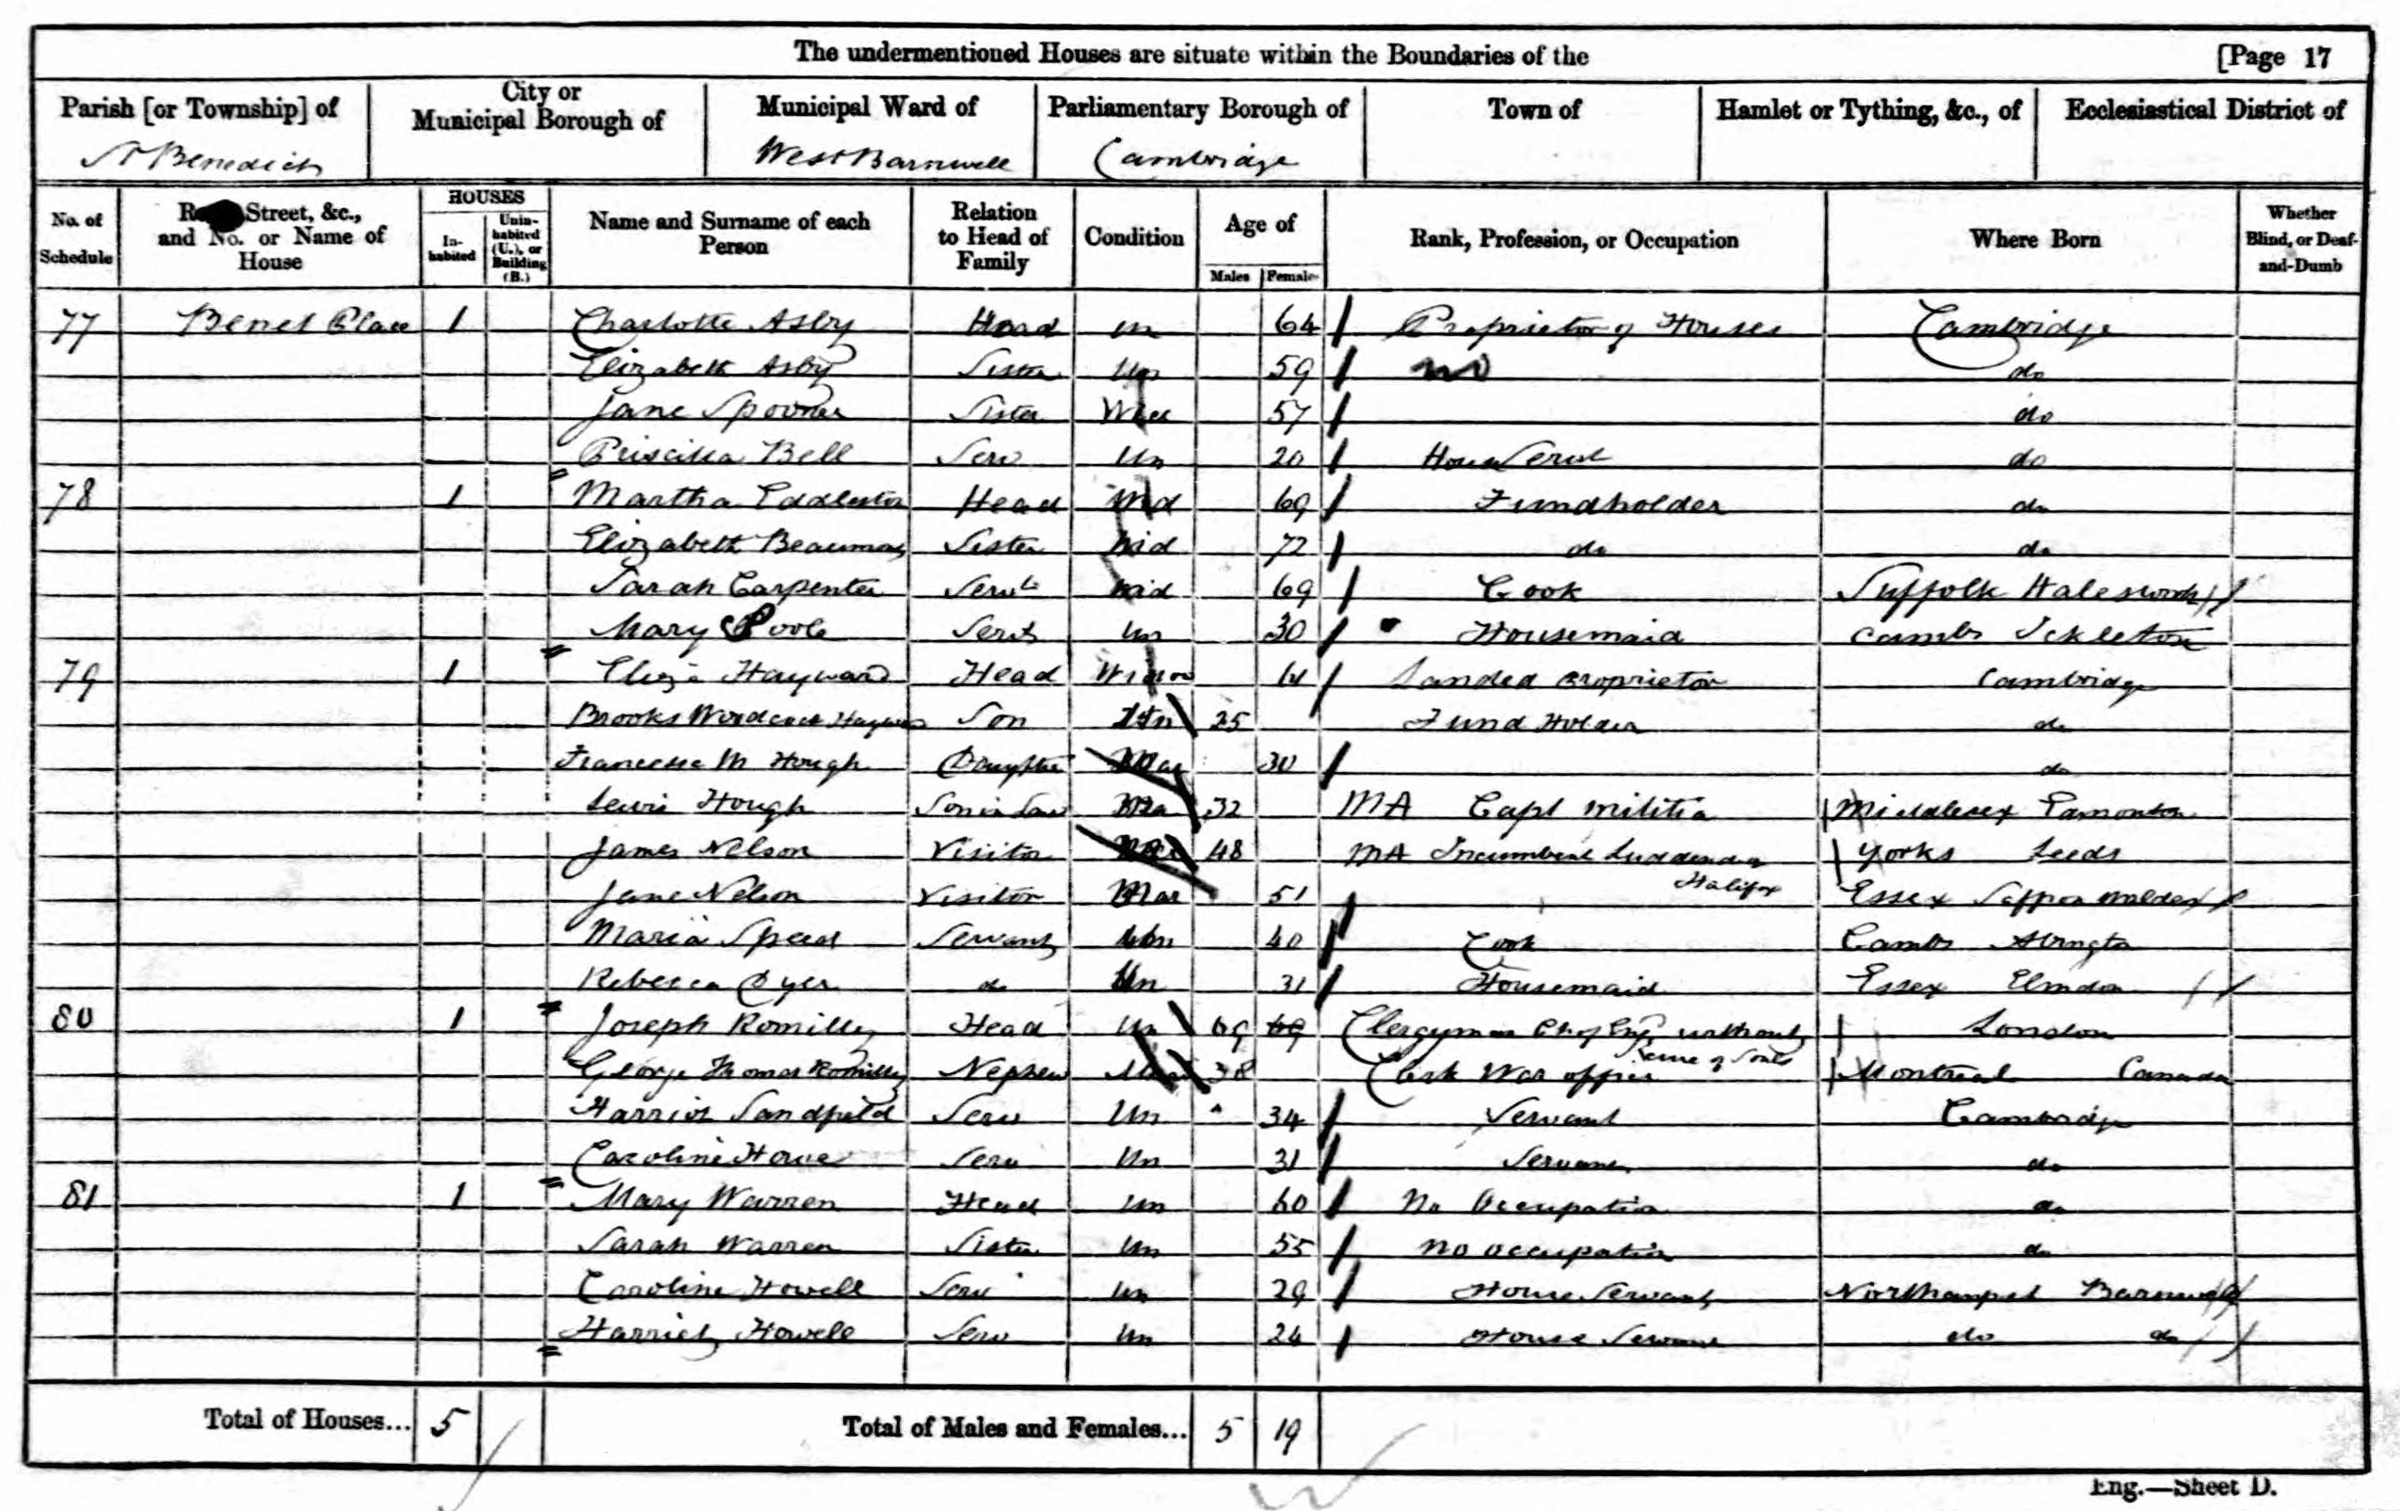 The undermentioned Houses are situate within the Boundaries of the [Page 17
Parish [or Township] of City or Municipal Borough of Municipal Ward of Parliamentary Borough of Town of Hamlet or Tything, &c., of Ecclesiastical District of
St Benedict West Barnwell Cambridge
No. of Schedule Street, &c., and No. or Name of House HOUSES Inhabited Uninhabited (U.), or Building (B.) Name and Surname of each Person Relation to Head of Family Condition Age of Males Females Rank, Profession, or Occupation Where Born Whether Blind, or Deaf-and-Dumb
77 Benet Place 1 Charlotte Asby Head Un 64 Proprietor of Houses Cambridge
Elizabeth Asby Sister Un 59 do
Jane Spooner Sister 57 do
Priscilla Bell Serv Un 20 House Servt do
78 1 Martha Eddleston Head Wd 69 Fundholder do
Elizabeth Beaumont Sister Wid 72 do do
Sarah Carpenter Servt Wid 69 Cook Suffolk Halesworth
Mary Poole Servt Un 30 Housemaid Cambs Ickleton
79 1 Eliza Hayward Head Widow 61 Landed Proprietor Cambridge
Brooks Woodcock Hayward Son Un 25 Fund Holder do
M Hough Daughter Mar 30 do
Lewis Hough Son in Law Ma 32 MA Capt Militia Middlesex Edmonton
James Nelson Visitor Mar 48 MA Incumbent Luddenden Yorks Leeds
Halifax
Jane Nelson Visitor Mar 51 Essex Saffron Walden
Maria Speed Servant Un 40 Cook Cambs Abington
Rebecca Dyer do Un 31 Housemaid Essex Elmdon
80 1 Joseph Romilly Head Un 69 69 Clergyman Ch of Eng without London
cure of Souls
George Thomas Romilly Nephew 38 Clerk War office Montreal Canada
Harriot Sandfield Serv Un 34 Servant Cambridge
Caroline Howe Serv Un 31 Servant do
81 1 Mary Warren Head Un 60 No Occupation do
Sarah Warren Sister Un 55 No occupation do
Caroline Howell Serv Un 29 House Servant Northampt Barnwell
Harriet Howell Serv Un 24 House Servant do do
Total of Houses... 5 Total of Males and Females... 5 19
Eng.—Sheet D.